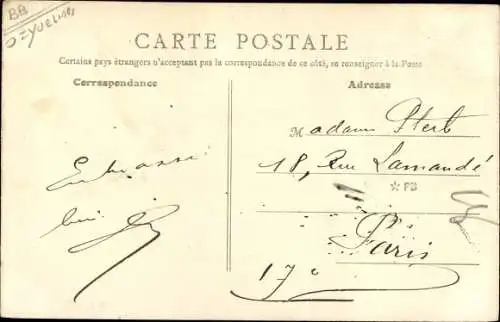 BB
D=YVELINES
CARTE POSTALE
Certains pays étrangers n'acceptant pas la correspondance de ce côté, se renseigner à la Poste
Correspondance
Adresse
Madame Stert
18, Rue Lamandé
☆ FB
Paris
17e